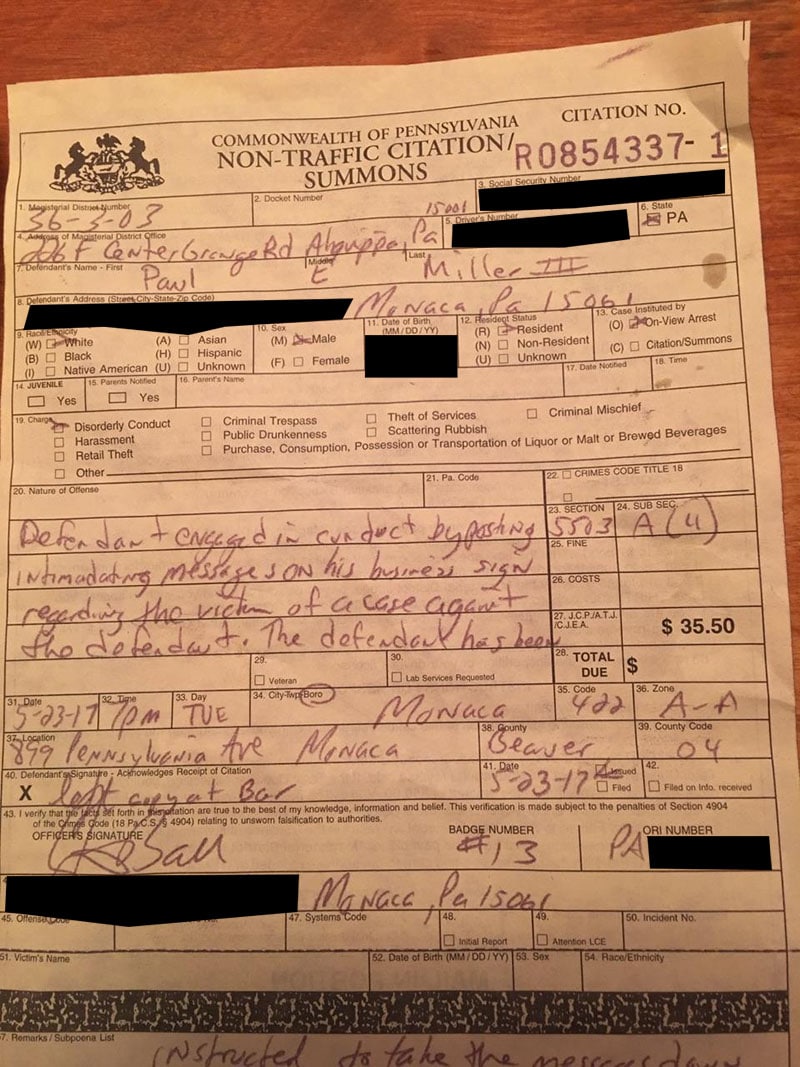 COMMONWEALTH OF PENNSYLVANIA
NON-TRAFFIC CITATION/
SUMMONS
CITATION NO.
R0854337-1
1. Magisterial District Number
36-3-03
2. Docket Number
3. Social Security Number
4. Address of Magisterial District Office
226 F Center Grange Rd Aliquippa, Pa 15001
5. Driver's Number
6. State
PA
7. Defendant's Name - First
Paul
Middle
E
Last
Miller III
8. Defendant's Address (Street-City-State-Zip Code)
Monaca, Pa 15061
9. Race/Ethnicity
(W) White (A) Asian
(B) Black (H) Hispanic
(I) Native American (U) Unknown
10. Sex
(M) Male
(F) Female
11. Date of Birth
(MM / DD / YY)
12. Resident Status
(R) Resident
(N) Non-Resident
(U) Unknown
13. Case Instituted by
(O) On-View Arrest
(C) Citation/Summons
14. JUVENILE
Yes
15. Parents Notified
Yes
16. Parent's Name
17. Date Notified
18. Time
19. Charge
Disorderly Conduct Criminal Trespass Theft of Services Criminal Mischief
Harassment Public Drunkenness Scattering Rubbish
Retail Theft Purchase, Consumption, Possession or Transportation of Liquor or Malt or Brewed Beverages
Other
20. Nature of Offense
21. Pa. Code
22. CRIMES CODE TITLE 18
Defendant engaged in conduct by posting
intimadating messages on his business sign
regarding the victim of a case against
the defendant. The defendant has been
23. SECTION
5503
24. SUB SEC.
A (4)
25. FINE
26. COSTS
27. J.C.P./A.T.J.
/C.J.E.A.
$ 35.50
28. TOTAL
DUE $
29.
Veteran
30.
Lab Services Requested
31. Date
5-23-17
32. Time
7pm
33. Day
TUE
34. City-Twp-Boro
Monaca
35. Code
422
36. Zone
A-A
37. Location
899 Pennsylvania Ave Monaca
38. County
Beaver
39. County Code
04
40. Defendant's Signature - Acknowledges Receipt of Citation
X left copy at Bar
41. Date
5-23-17
Issued
Filed
42.
Filed on Info. received
43. I verify that the facts set forth in this citation are true to the best of my knowledge, information and belief. This verification is made subject to the penalties of Section 4904
of the Crimes Code (18 Pa.C.S. § 4904) relating to unsworn falsification to authorities.
OFFICER'S SIGNATURE
BADGE NUMBER
#13
ORI NUMBER
PA
Monaca, Pa 15061
45. Offense Code
47. Systems Code
48.
Initial Report
49.
Attention LCE
50. Incident No.
51. Victim's Name
52. Date of Birth (MM / DD / YY)
53. Sex
54. Race/Ethnicity
7. Remarks / Subpoena List
instructed to take the messages down